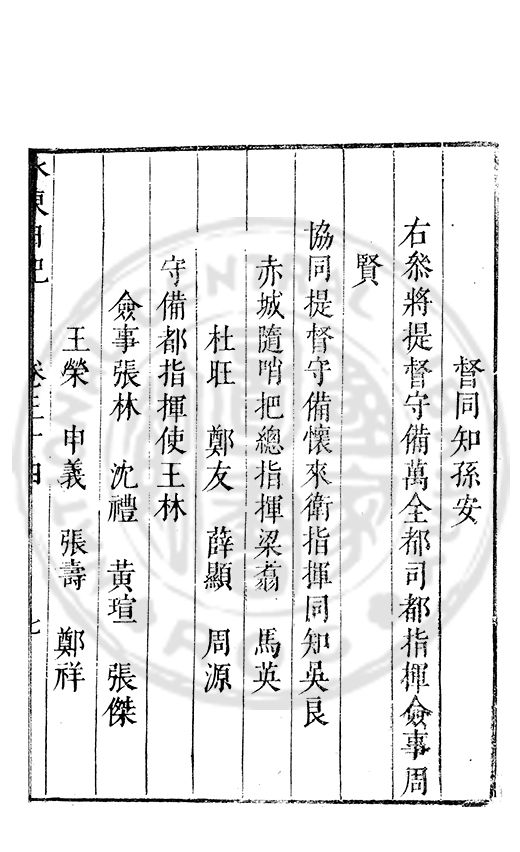 督同知孫安
右叅將提督守備萬全都司都指揮僉事周
賢
協同提督守備懷來衛指揮同知吳良
赤城隨哨把總指揮梁翥 馬英
杜旺 鄭友 薛顯 周源
守備都指揮使王林
僉事張林 沈禮 黃瑄 張傑
王榮 申義 張壽 鄭祥
水東日記 卷三十四 七